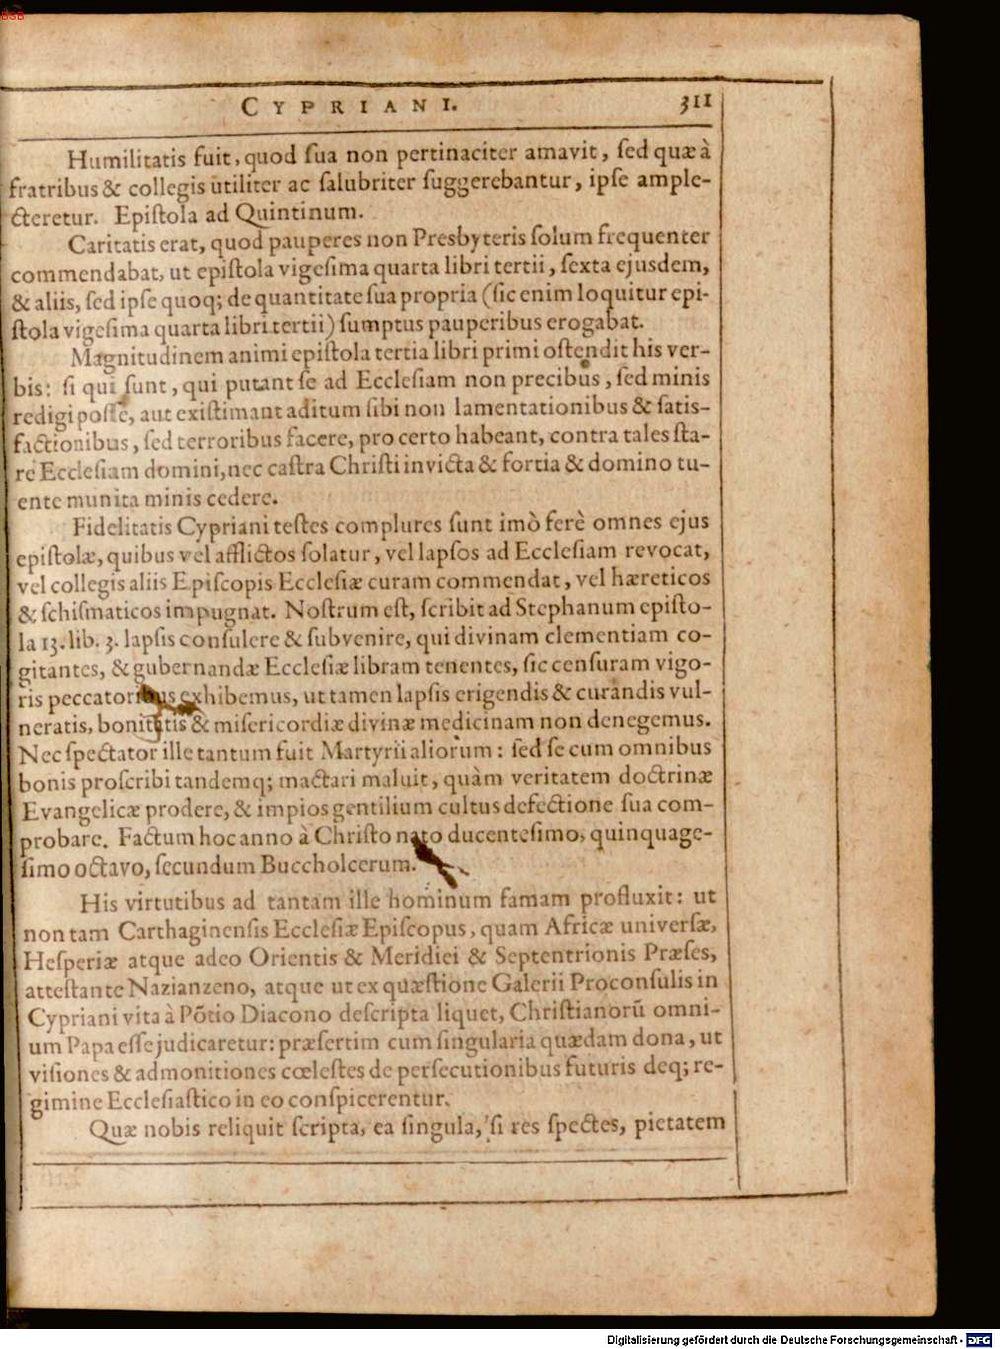 BSB
CYPRIANI. 311
Humilitatis fuit, quod ſua non pertinaciter amavit, ſed quæ à
fratribus & collegis utiliter ac ſalubriter ſuggerebantur, ipſe ample-
cteretur. Epiſtola ad Quintinum.
Caritatis erat, quod pauperes non Presbyteris ſolum frequenter
commendabat, ut epiſtola vigeſima quarta libri tertii, ſexta ejusdem,
& aliis, ſed ipſe quoq; de quantitate ſua propria (ſic enim loquitur epi-
ſtola vigeſima quarta libri tertii) ſumptus pauperibus erogabat.
Magnitudinem animi epiſtola tertia libri primi oſtendit his ver-
bis: ſi qui ſunt, qui putant ſe ad Eccleſiam non precibus, ſed minis
redigi poſſe, aut exiſtimant aditum ſibi non lamentationibus & ſatis-
factionibus, ſed terroribus facere, pro certo habeant, contra tales ſta-
re Eccleſiam domini, nec caſtra Chriſti invicta & fortia & domino tu-
ente munita minis cedere.
Fidelitatis Cypriani teſtes complures ſunt imò ferè omnes ejus
epiſtolæ, quibus vel afflictos ſolatur, vel lapſos ad Eccleſiam revocat,
vel collegis aliis Epiſcopis Eccleſiæ curam commendat, vel hæreticos
& ſchiſmaticos impugnat. Noſtrum eſt, ſcribit ad Stephanum epiſto-
la 13. lib. 3. lapſis conſulere & ſubvenire, qui divinam clementiam co-
gitantes, & gubernandæ Eccleſiæ libram tenentes, ſic cenſuram vigo-
ris peccatoribus exhibemus, ut tamen lapſis erigendis & curandis vul-
neratis, bonitatis & miſericordiæ divinæ medicinam non denegemus.
Nec ſpectator ille tantum fuit Martyrii aliorum: ſed ſe cum omnibus
bonis proſcribi tandemq; mactari maluit, quàm veritatem doctrinæ
Evangelicæ prodere, & impios gentilium cultus defectione ſua com-
probare. Factum hoc anno à Chriſto nato ducenteſimo, quinquage-
ſimo octavo, ſecundum Buccholcerum.
His virtutibus ad tantam ille hominum famam profluxit: ut
non tam Carthaginenſis Eccleſiæ Epiſcopus, quam Africæ univerſæ,
Heſperiæ atque adeo Orientis & Meridiei & Septentrionis Præſes,
atteſtante Nazianzeno, atque ut ex quæſtione Galerii Proconſulis in
Cypriani vita à Põtio Diacono deſcripta liquet, Chriſtianorũ omni-
um Papa eſſe judicaretur: præſertim cum ſingularia quædam dona, ut
viſiones & admonitiones cœleſtes de perſecutionibus futuris deq; re-
gimine Eccleſiaſtico in eo conſpicerentur.
Quæ nobis reliquit ſcripta, ea ſingula, ſi res ſpectes, pietatem
Digitalisierung gefördert durch die Deutsche Forschungsgemeinschaft - DFG